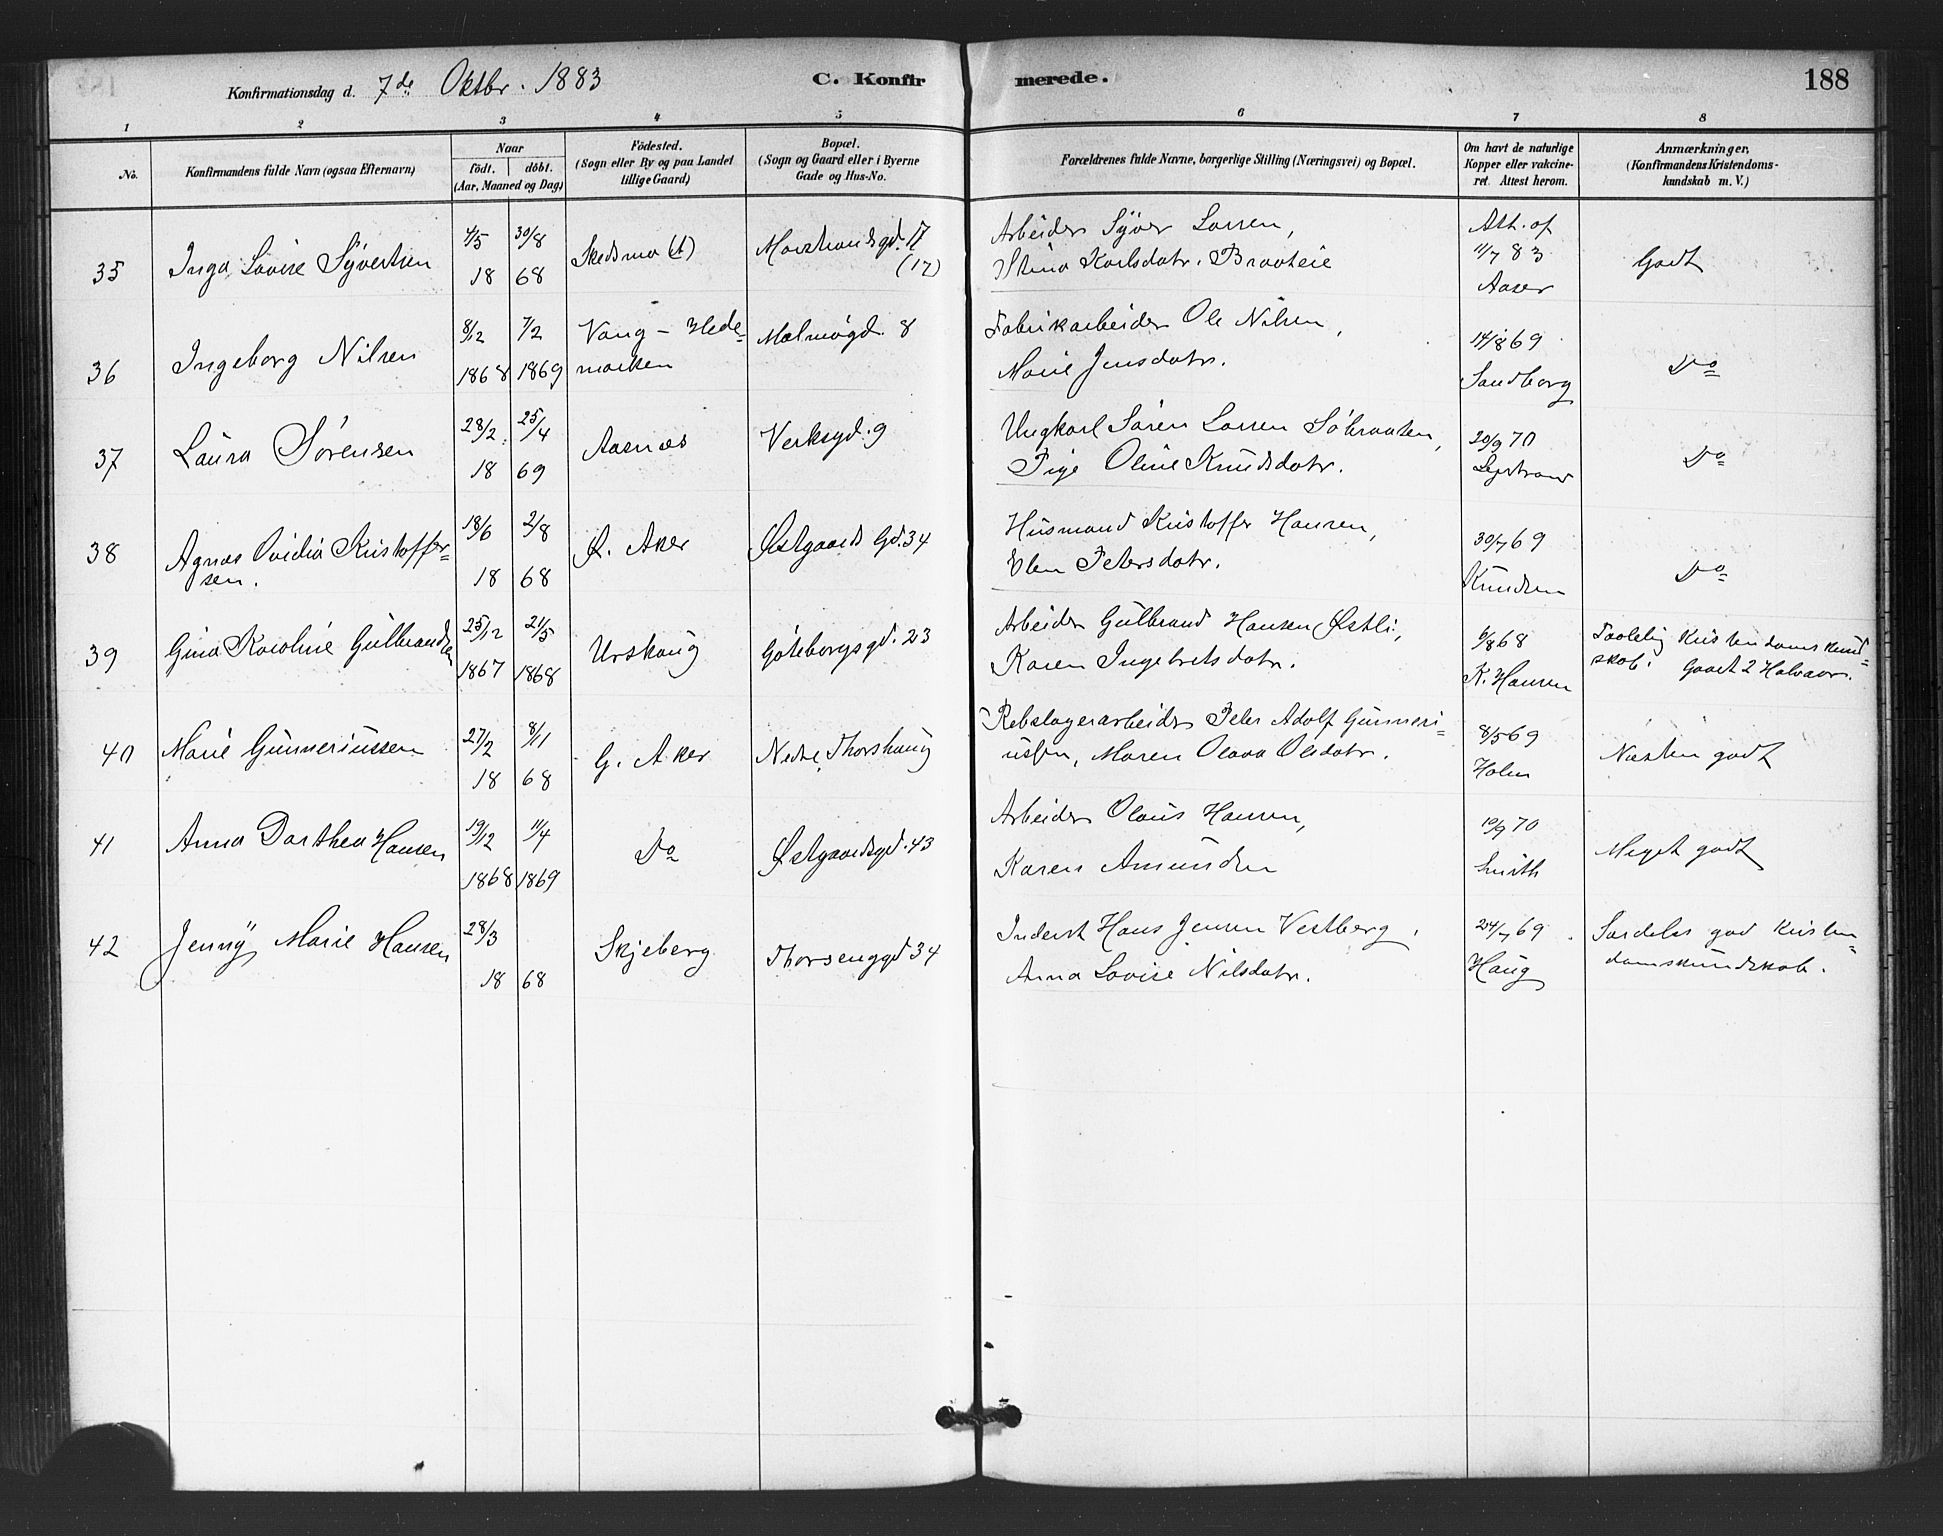 Konfirmationsdag d. 7de Oktbr. 1883 C. Konfirmerede. 188
1 2 3 4 5 6 7 8
No. Konfirmandens fulde Navn (ogsaa Efternavn) Naar födt. döbt. (Aar, Maaned og Dag) Födested. (Sogn eller By og paa Landet tillige Gaard) Bopæl. (Sogn og Gaard eller i Byerne Gade og Hus-No. Forældrenes fulde Navne, borgerlige Stilling (Næringsvei) og Bopæl. Om havt de naturlige Kopper eller vakcineret. Attest herom. Anmærkninger, (Konfirmandens Kristendomskundskab m. V.)
35 Inga Lovise Syvertsen 4/5 18 30/8 68 Skedsmo Marstrandsgd. 17 (17)
Arbeider Syver Larsen,
Stina Karlsdatr. Braateie
Att. af 11/7 83 Aaser
Godt
36 Ingeborg Nilsen 8/12 1868 7/2 1869 Vang - Hedemarken Malmøgd. 8
Fabrikarbeider Ole Nilsen,
Marie Jensdatr.
14/8 69 Sandberg
Do
37 Laura Sørensen 28/2 18 25/4 69 Aasnæs Verksgd. 9
Ungkarl Søren Larsen Søbraaten,
Pige Oline Knudsdatr.
20/9 70
Do
38 Agnes Ovidia Kristoffersen. 18/6 18 2/8 68 Ø. Aker Østgaards Gd. 34
Husmand Kristoffer Hansen,
Elen Petersdatr.
30/7 69 Knudsen
Do
39 Gina Karoline Gulbrandsen 25/12 1867 21/5 1868 Urskoug Göteborgsgd. 23
Arbeider Gulbrand Hansen Østli,
Karen Ingebretsdatr.
6/8 68 K. Hansen
Taalelig Kristendomskundskab. Gaaet 2 Halvaar.
40 Marie Gunneriussen 27/2 18 8/11 68 G. Aker Nedre Thorshaug
Rebslagerarbeider Peter Adolf Gunneriussen, Maren Olava Olsdatr.
8/5 69 Holm
Næsten godt
41 Anna Dorthea Hansen 19/12 1868 11/4 1869 Do Østgaardsgd. 43
Arbeider Olaus Hansen,
Karen Amundsen
19/9 70 Smith
Meget godt
42 Jenny Marie Hansen 28/3 18 68 Skjeberg Thorsenggd 34
Inderst Hans Jensen Vestberg,
Anna Lovise Nilsdatr.
24/7 69. Haug
Særdeles god Kristendomskundskab.